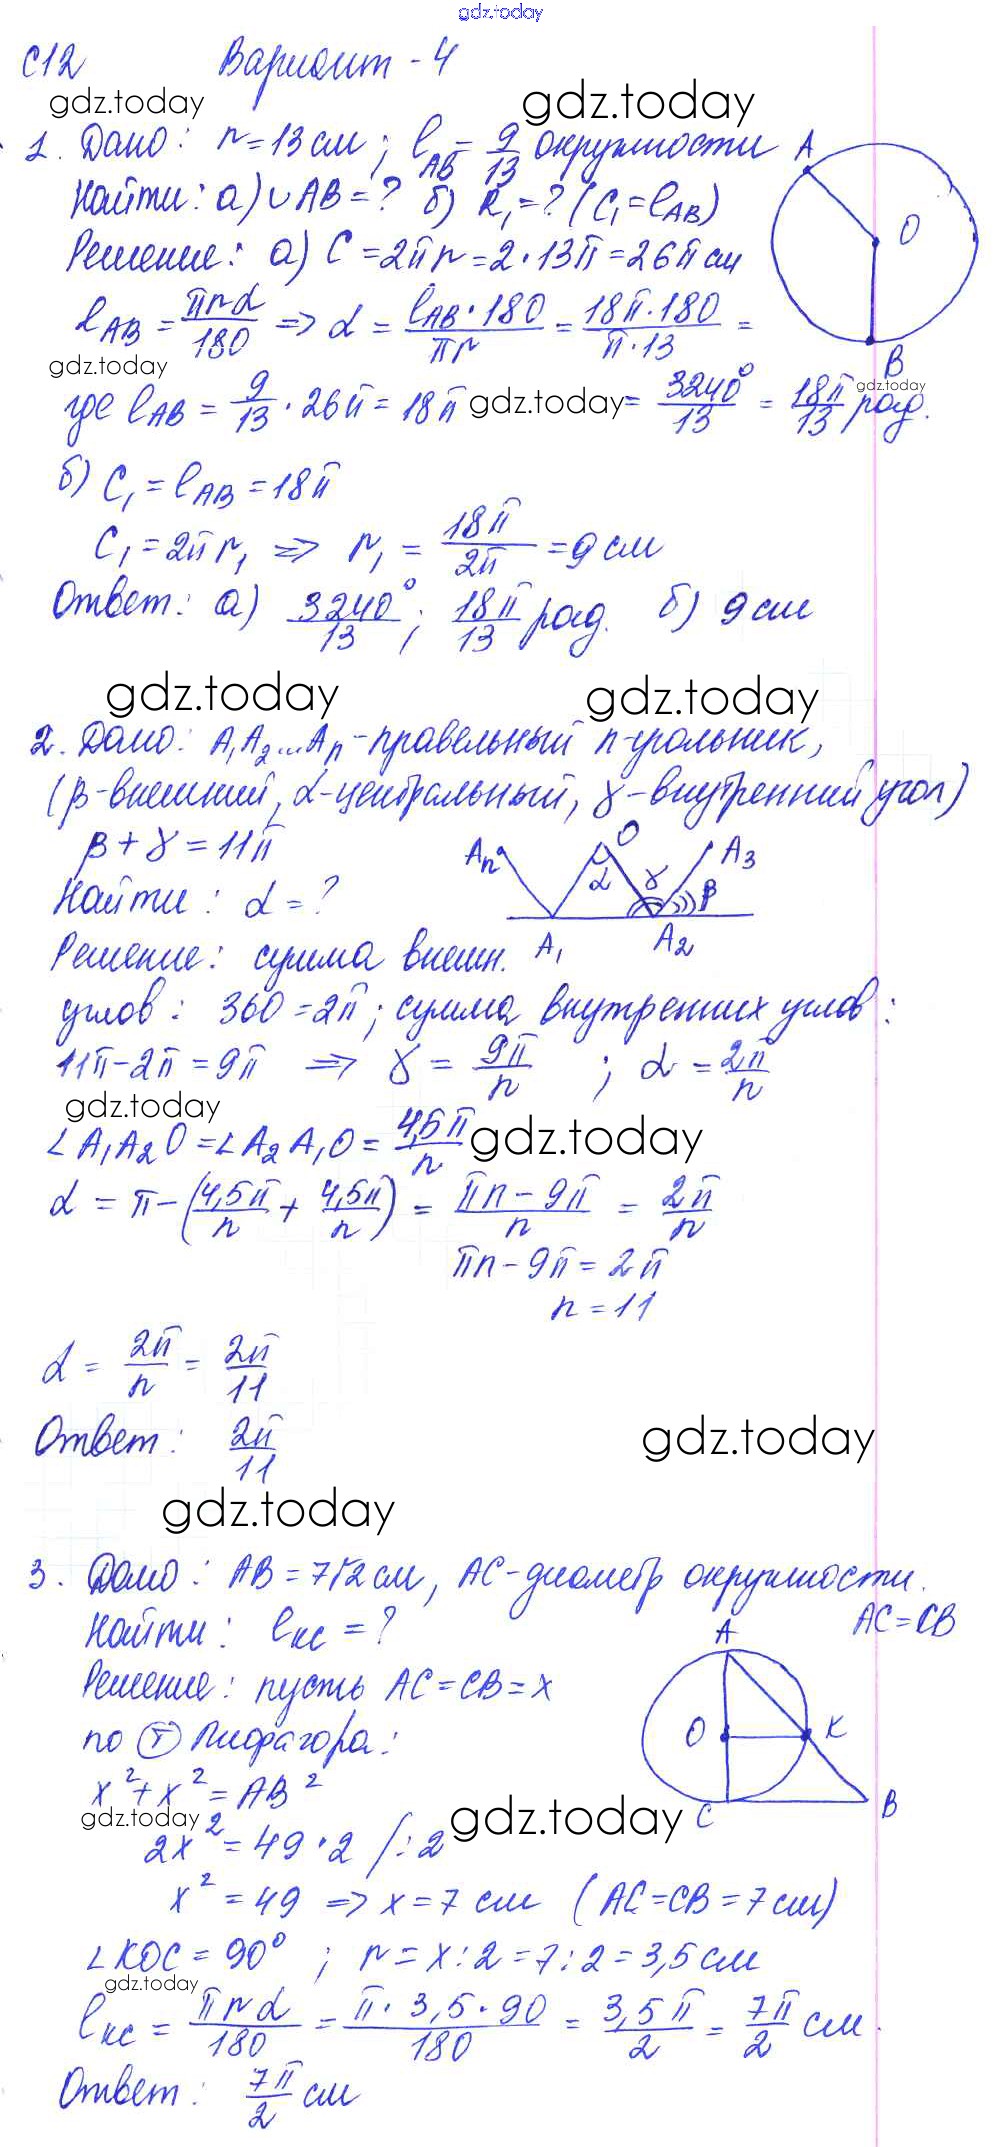 gdz.today
С12 Вариант - 4
gdz.today gdz.today
1. Дано: r = 13 см; l_AB = 9/13 окружности
Найти: а) ∪AB = ? б) R₁ = ? (C₁ = l_AB)
Решение: а) C = 2πr = 2·13π = 26π см
l_AB = πrα/180 => α = l_AB·180/πr = 18π·180/π·13 =
A O B
gdz.today gdz.today gdz.today
где l_AB = 9/13 · 26π = 18π = 3240°/13 = 18π/13 рад.
б) C₁ = l_AB = 18π
C₁ = 2πr₁ => r₁ = 18π/2π = 9 см
Ответ: а) 3240°/13; 18π/13 рад. б) 9 см
gdz.today gdz.today
2. Дано: A₁A₂...Aₙ - правельный n-угольник,
(β-внешний, α-центральный, γ-внутренний угол)
β + γ = 11π
Найти: α = ?
Aₙ O α γ A₃ β
A₁ A₂
Решение: сумма внешн.
углов: 360 = 2π; сумма внутренних углов:
11π - 2π = 9π => γ = 9π/n ; α = 2π/n
gdz.today gdz.today
∠A₁A₂O = ∠A₂A₁O = 4,5π/n
α = π - (4,5π/n + 4,5π/n) = πn - 9π/n = 2π/n
πn - 9π = 2π
n = 11
α = 2π/n = 2π/11
Ответ: 2π/11
gdz.today
gdz.today
3. Дано: AB = 7√2 см, AC - диаметр окружности.
AC = CB
Найти: l_KC = ?
Решение: пусть AC = CB = x
по Т Пифагора:
A O K C B
x² + x² = AB²
gdz.today gdz.today
2x² = 49·2 /:2
x² = 49 => x = 7 см (AC = CB = 7 см)
∠KOC = 90° ; r = x:2 = 7:2 = 3,5 см
gdz.today
l_KC = πrα/180 = π·3,5·90/180 = 3,5π/2 = 7π/2 см.
Ответ: 7π/2 см